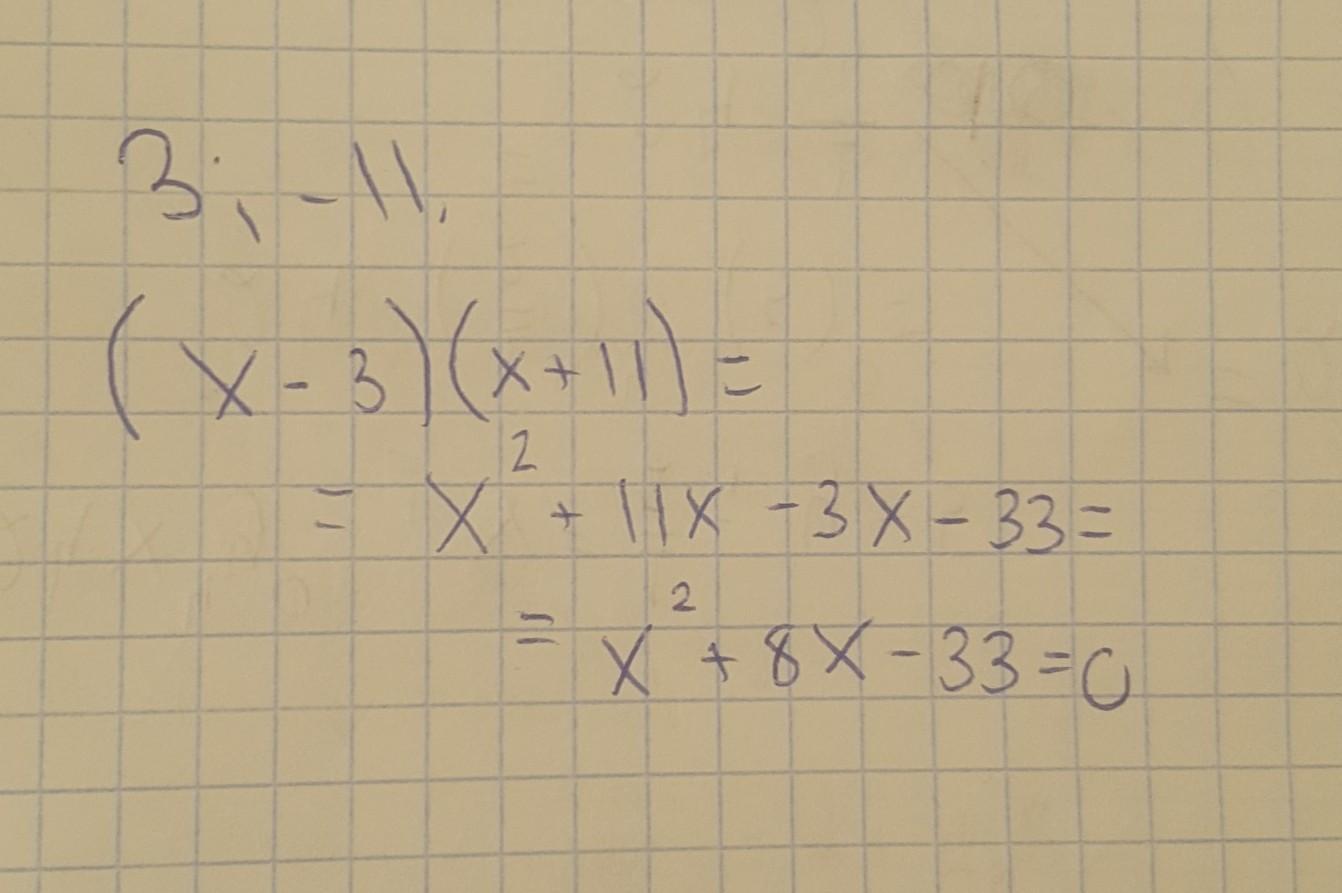 3; -11.
(x-3)(x+11)=
= x² + 11x - 3x - 33 =
= x² + 8x - 33 = 0